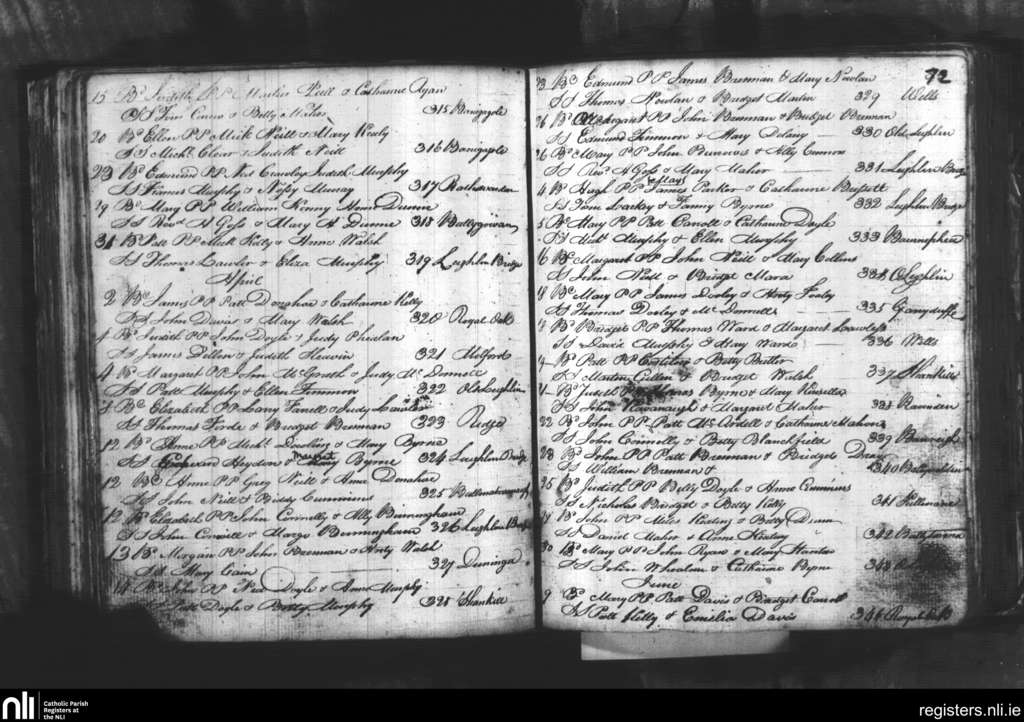 15 Bd Judith PP Martin Neill & Catharine Ryan
SS Tim Conra & Betty 315 Banigogole
20 Bd Ellen PP Mick Neill & Mary Nealy
SS Michl Clear & Judith Neill 316 Banigogole
23 Bd Edmund PP Nichs Crawley Judith Murphy
SS Thomas Murphy & Nelly Murray 317
29 Bd Mary PP William Kenny Nora Dunne
SS Revd H Goss & Mary A Dunne 318 Ballygowan
31 Bd Patt PP Mick Kelly & Anne Walsh
SS Thomas Lawlor & Eliza Murphy 319 Leighlin Bridge
April
2 Bd James PP Patt Donohoe & Catharine Kelly
SS John Davis & Mary Walsh 320 Royal Oak
4 Bd Judith PP John Doyle & Judy Phelan
SS James Dillon & Judith 321 Milford
4 Bd Margaret PP John McGrath & Judy Mc
SS Patt Murphy & Ellen Timmon 322 Old Leighlin
5 Bd Elizabeth PP Lany Farrell & Judy Lawler
SS Thomas Forde & Bridget Brennan 323 Ridge
12 Bd Anne PP Michl Dowling & Mary Byrne
SS Heydon & Margret Byrne 324 Leighlin Bridge
12 Bd Anne PP Grey Neill & Anne Donahoe
SS John Neill & Biddy Cummins 325
12 Bd Elizabeth PP John Connolly & Ally Birmingham
SS John Conill & Margt Bermingham 326 Leighlin Bridge
13 Bd Morgan PP John Brennan & Honty Walsh
SS & Mary Cain 327 Duninga
14 Bd John PP Ned Doyle & Anne Murphy
SS Patt Doyle & Betty Murphy 328 Shankill
72
23 Bd Edmund PP James Brennan & Mary Nowlan
SS Thomas Nowlan & Bridget Martin 329 Wells
26 Bd Margaret PP John Brennan & Bridget Brennan
SS Edmund Timmon & Mary Delany 330 Old Leighlin
26 Bd Mary PP John Brennan & Ally Connor
SS Revd H Goss & Mary Maher 331 Leighlin Bridge
May
4 Bd Hugh PP James Parker & Catharine Bassett
SS Tom Larkey & Fanny Byrne 332 Leighlin Bridge
5 Bd Mary PP Patt Carroll & Catharine Doyle
SS Michl Murphy & Ellen Murphy 333 Baunaphea
6 Bd Margaret PP John Neill & Mary Collins
SS John Neill & Bridget Mara 334 O Leighlin
8 Bd Mary PP James Dooley & Honty Foaley
SS Thomas Dooley & Mc Donnell 335 Garryduffe
Bd Bridget PP Thomas Ward & Margaret Lawless
SS David Murphy & Mary Ward 336 Wells
Bd Patt PP & Betty Butler
SS Martin Cullen & Bridget Walsh 337 Shankill
Bd Judith Byrne & Mary Kinsella
SS John Kavanaugh & Margaret Maher 338
22 Bd John PP Patt McArdell & Catharine Mahony
SS John Connolly & Betty Blanchfield 339
23 Bd John PP Patt Brennan & Bridget
SS William Brennan & 340
25 Bd Judith PP Billy Doyle & Anne Cummins
SS Nicholas Bridget & Betty Kelly 341 Killinane
Bd John PP Miles Keating & Betty
SS David Maher & Anne Keating 342
30 Bd Mary PP John Ryan & Mary
SS John Whealan & Catharine Byrne 343
June
9 Bd Mary PP Patt Davis & Bridget Carroll
SS Patt Kelly & Emilia Davis 344 Royal Oak
nli Catholic Parish
Registers at
the NLI
registers.nli.ie